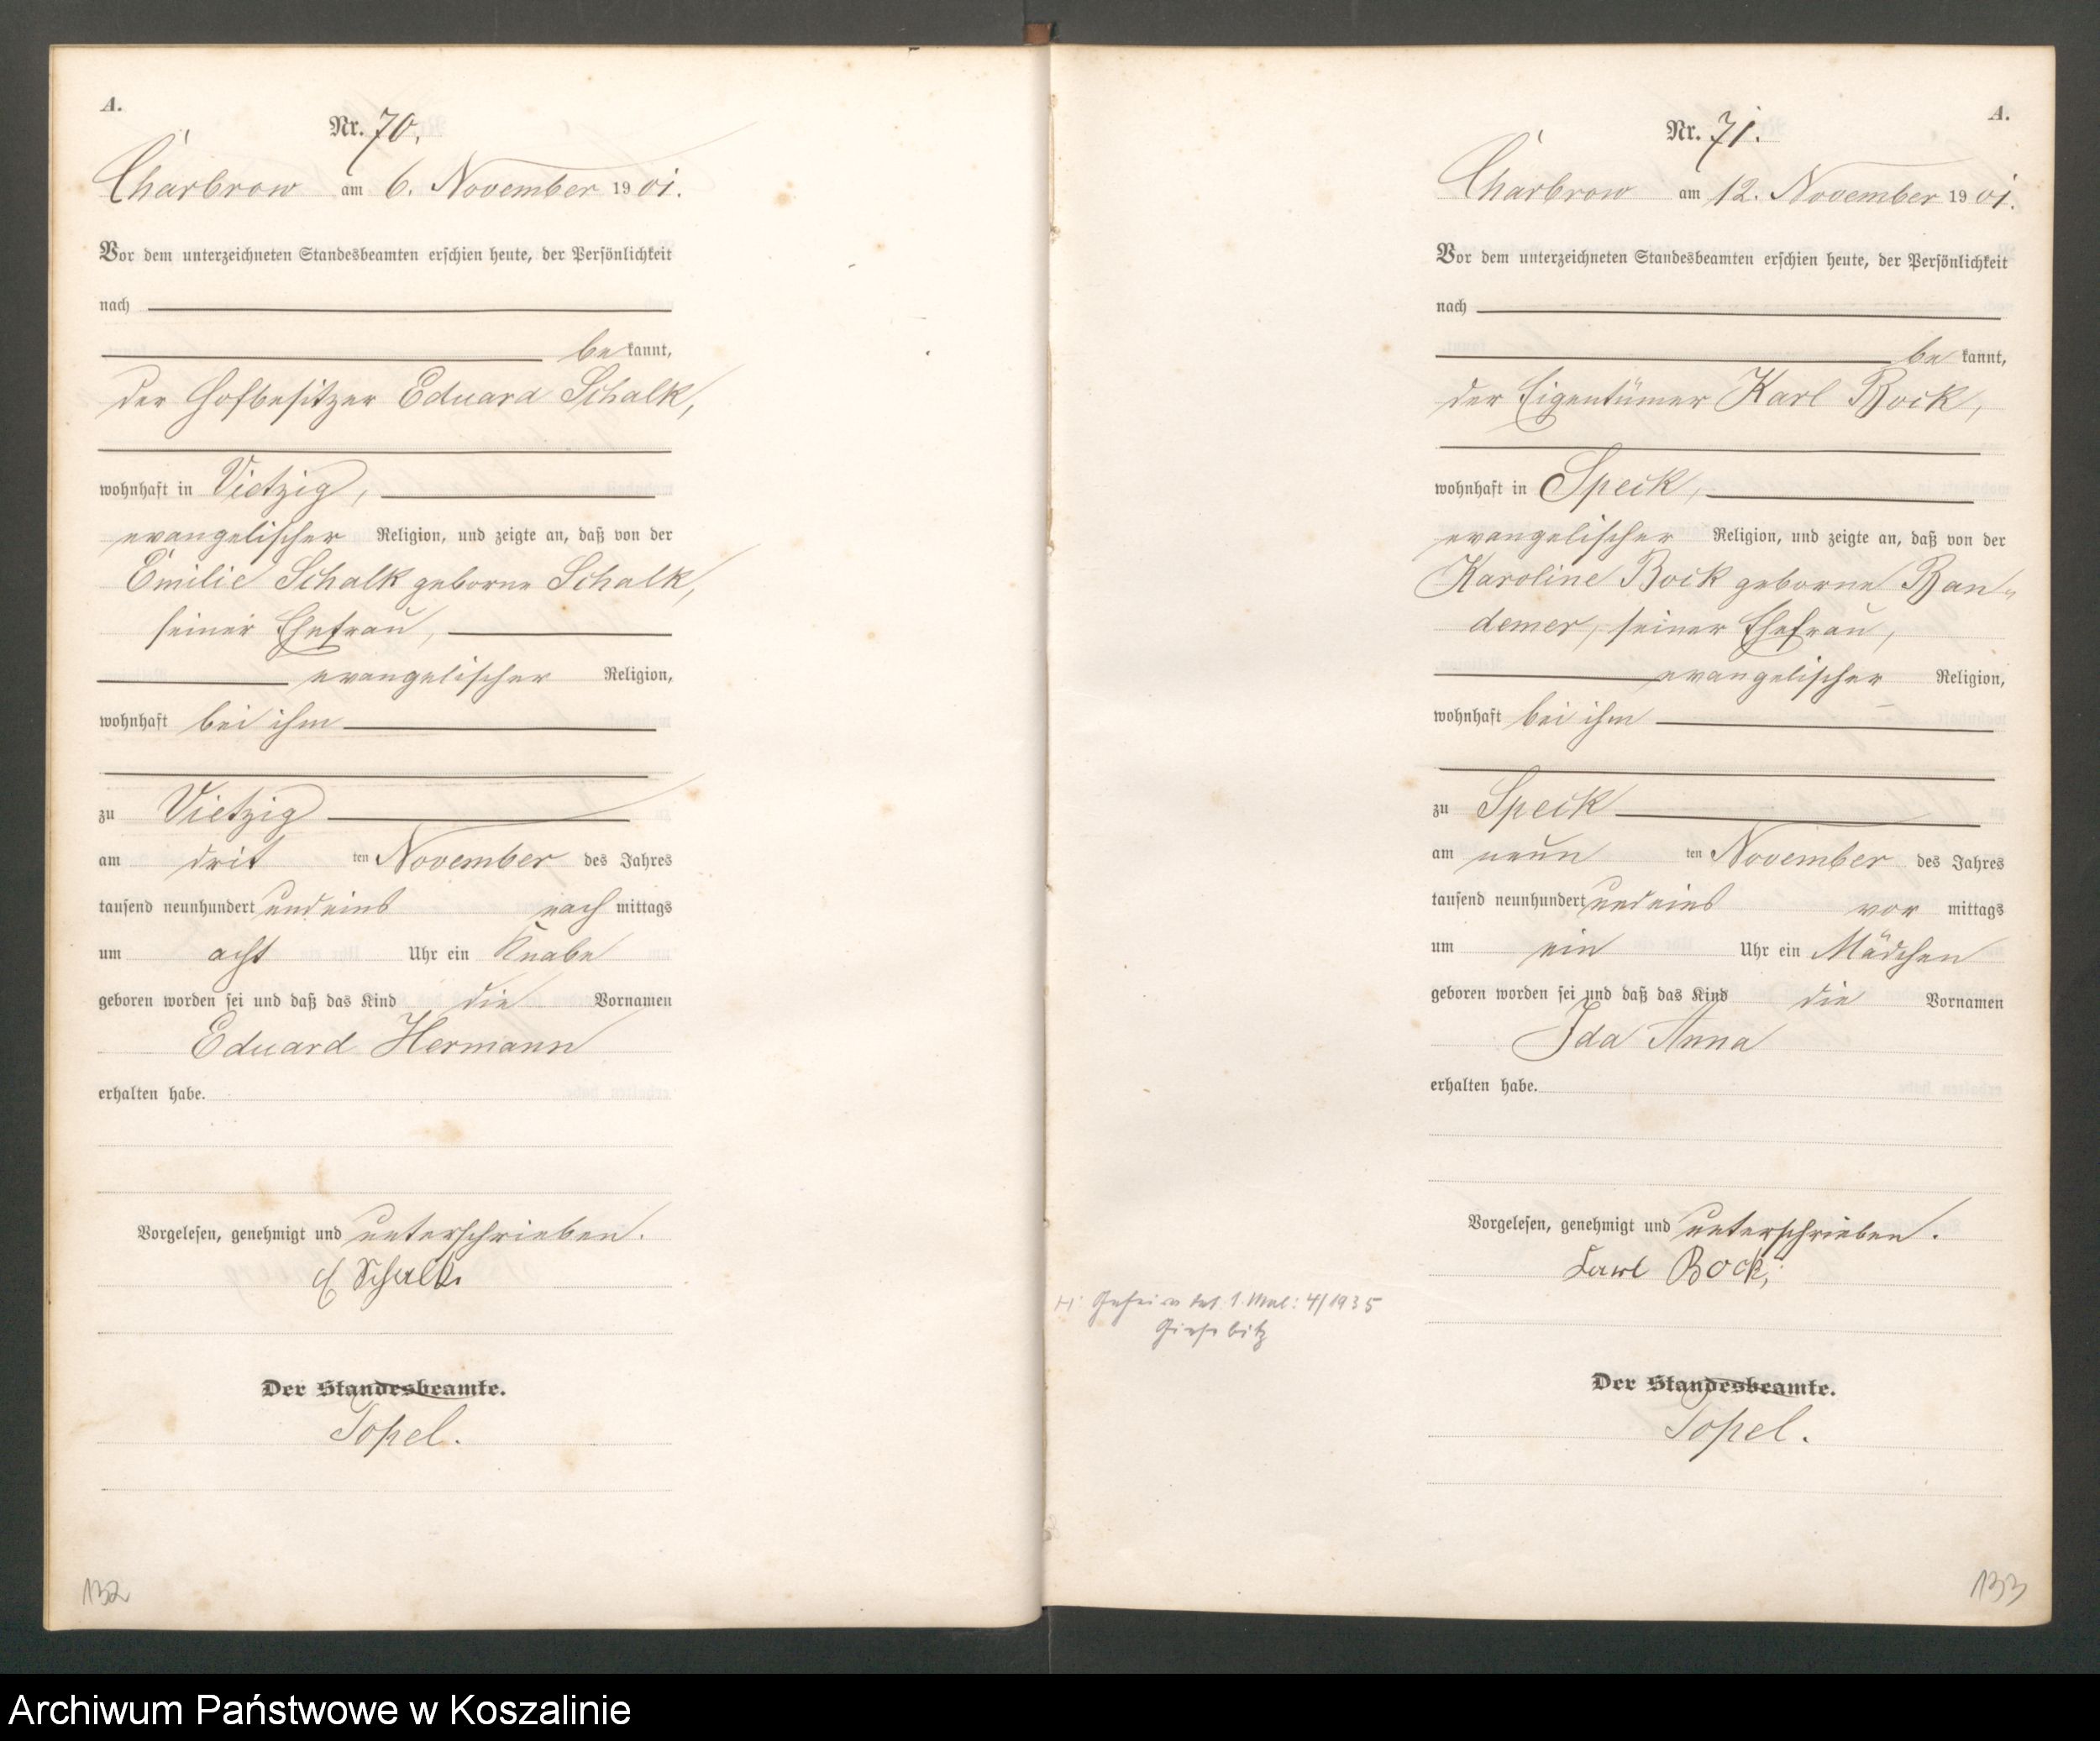 A.
Nr. 70.
Charbrow am 6. November 1901.
Vor dem unterzeichneten Standesbeamten erschien heute, der Persönlichkeit
nach
be kannt,
der Hofbesitzer Eduard Schalk,
wohnhaft in Vietzig,
evangelischer Religion, und zeigte an, daß von der
Emilie Schalk geborne Schalk,
seiner Ehefrau,
evangelischer Religion,
wohnhaft bei ihm
zu Vietzig
am drit ten November des Jahres
tausend neunhundert und eins nach mittags
um acht Uhr ein Knabe
geboren worden sei und daß das Kind die Vornamen
Eduard Hermann
erhalten habe.
Vorgelesen, genehmigt und unterschrieben.
E Schalk
Der Standesbeamte.
Topel.
132
A.
Nr. 71.
Charbrow am 12. November 1901.
Vor dem unterzeichneten Standesbeamten erschien heute, der Persönlichkeit
nach
be kannt,
der Eigentümer Karl Bock,
wohnhaft in Speck,
evangelischer Religion, und zeigte an, daß von der
Karoline Bock geborne Ban-
demer, seiner Ehefrau,
evangelischer Religion,
wohnhaft bei ihm
zu Speck
am neun ten November des Jahres
tausend neunhundert und eins vor mittags
um ein Uhr ein Mädchen
geboren worden sei und daß das Kind die Vornamen
Ida Anna
erhalten habe.
Vorgelesen, genehmigt und unterschrieben.
Karl Bock,
H: 1. Mal: 4/1935
Giesebitz
Der Standesbeamte.
Topel.
133
Archiwum Państwowe w Koszalinie